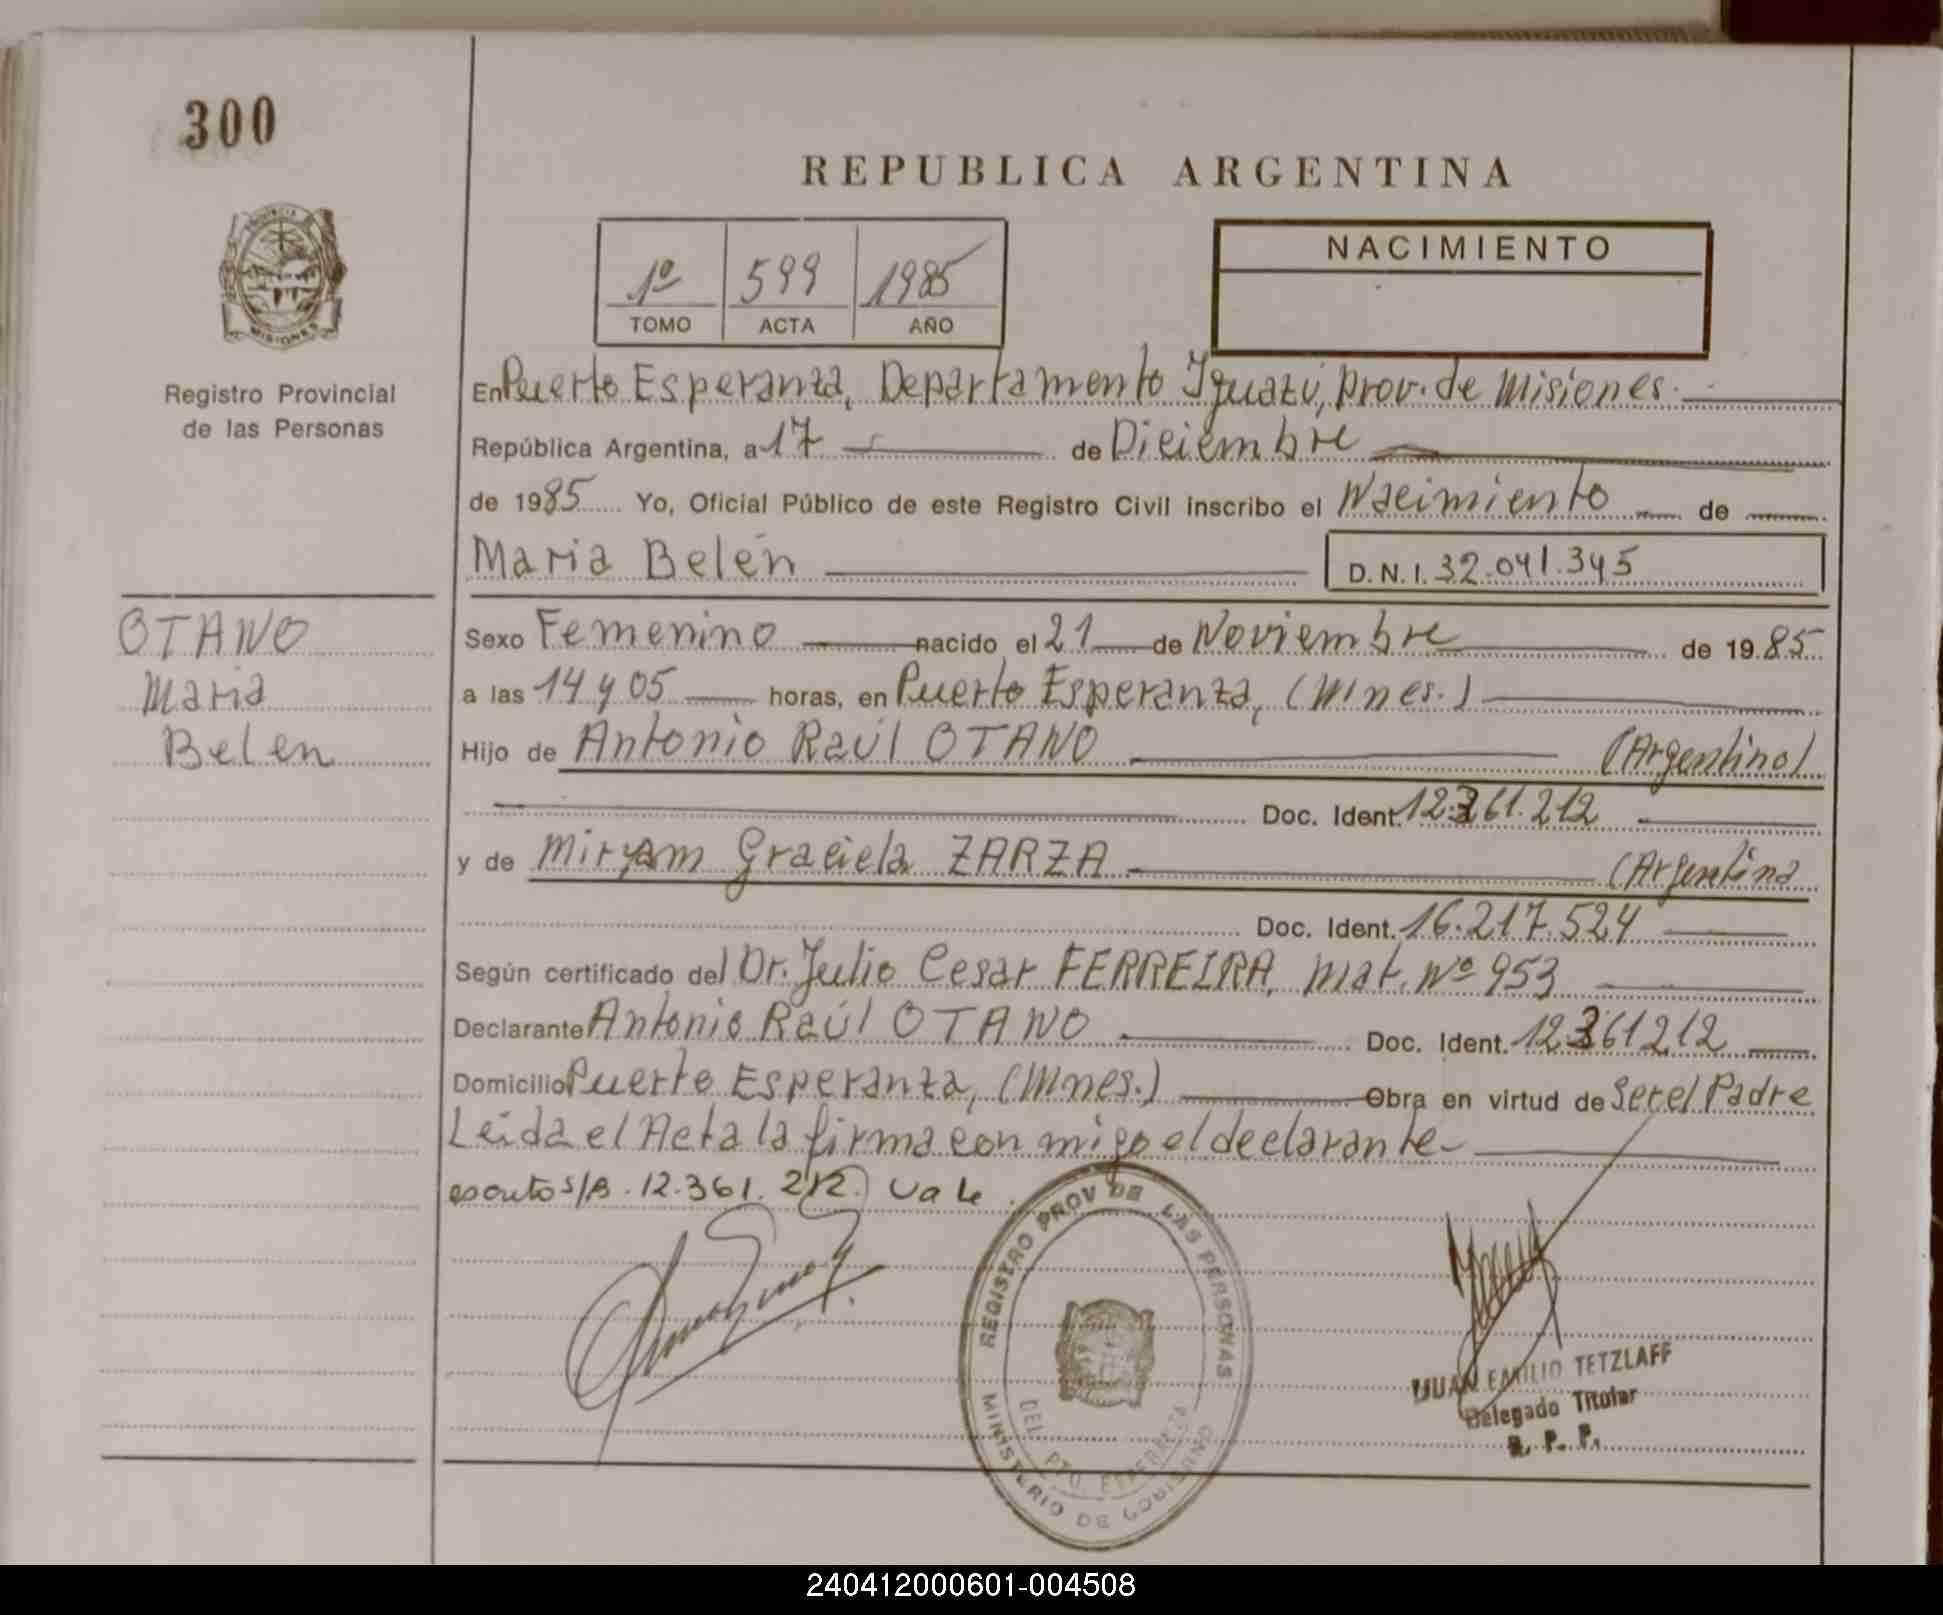 300
REPUBLICA ARGENTINA
PROVINCIA DE
MISIONES
Registro Provincial
de las Personas
1º 599 1985
TOMO ACTA AÑO
NACIMIENTO
En Puerto Esperanza, Departamento Iguazú, Prov. de Misiones.
República Argentina, a 17 de Diciembre
de 1985 Yo, Oficial Público de este Registro Civil inscribo el Nacimiento de
Maria Belén D.N.I. 32.041.345
OTANO
Maria
Belen
Sexo Femenino nacido el 21 de Noviembre de 1985
a las 14 y 05 horas, en Puerto Esperanza, (Mnes.)
Hijo de Antonio Raúl OTANO (Argentino)
Doc. Ident. 12.361.212
y de Miryam Graciela ZARZA (Argentina
Doc. Ident. 16.217.524
Según certificado del Dr. Julio Cesar FERREIRA, Mat. Nº 953
Declarante Antonio Raúl OTANO Doc. Ident. 12361212
Domicilio Puerto Esperanza, (Mnes.) Obra en virtud de Ser el Padre
Leida el Acta la firma con migo el declarante
escrito s/B. 12.361.212. Vale
REGISTRO PROV DE LAS PERSONAS
DEL. PTO. ESPERANZA
MINISTERIO DE GOBIERNO
JUAN EMILIO TETZLAFF
Delegado Titular
R. P. P.
240412000601-004508